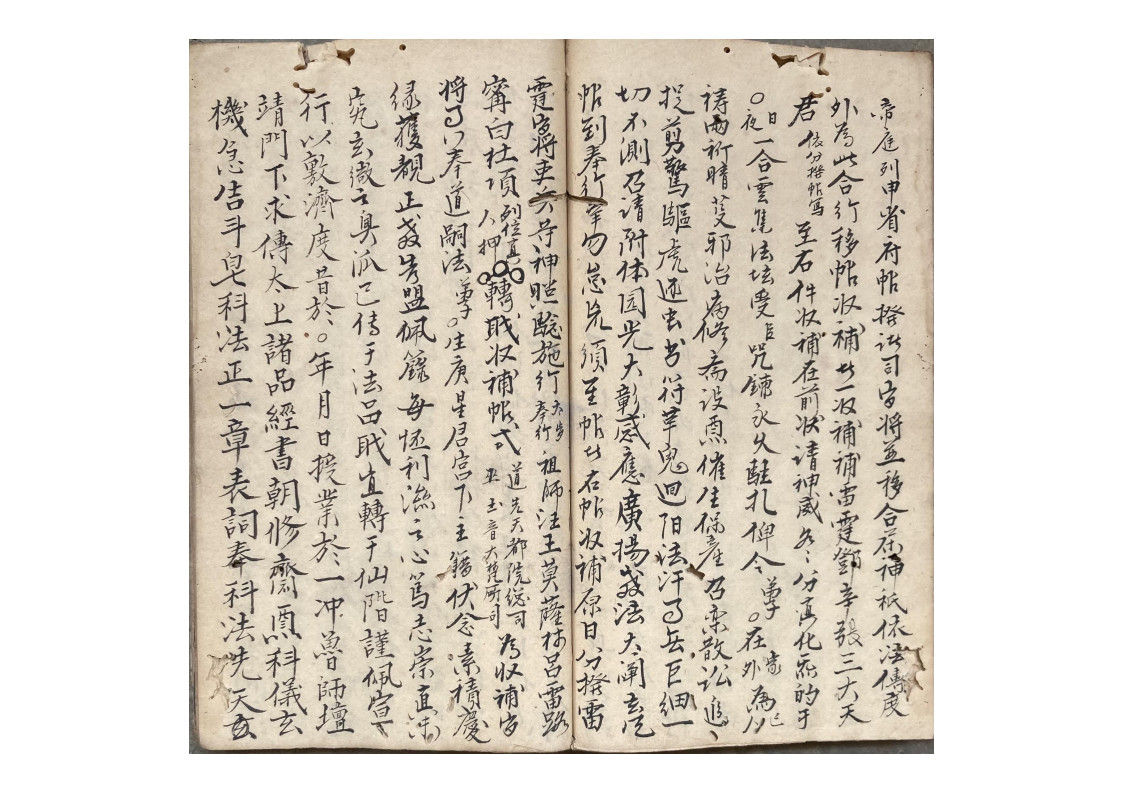 帝庭列申省府帖撥諸司官將並移合荅神祇依法傳度
外為此合行移帖收補廾一收補補雷霆鄧辛張三大天
君 依分撥帖寫 至右件收補在前狀請神威各々分真化炁的于
○日夜一合雲集法壇受臣咒鍊永久駐扎俾令 尊○在家外為人已
禱雨祈晴芟邪治病修斋設醮催生保產召栄散訟追々
捉剪驚驅虎遞出書符筆鬼迴陽法汗司岳巨細一
切不測召請附体园光大彰感應廣揚教法大闡玄風
帖到奉行筆勿怠先須至帖者右帖收補原日分撥雷
霆官將吏兵等神照驗施行 大步奉行 祖師法王莫薩林呂雷路
寗白杜項 列位真人押 轉職收補帖式 道先天都院総司 巫玉音大梵所司 為收補官
將司以奉道嗣法尊○生庚星君宮下主籍伏念素積慶
緑獲覩正教告盟佩籙每怪利濟之心篤志崇真
究玄微之奧派已傳于法品職宜轉于仙階謹佩宣
行以敷濟度昔於○年月日授業於一冲曾師壇
靖門下求傳太上諸品經書朝修齋醮科儀玄
機急告斗皂科法正一章表詞奉科法先天